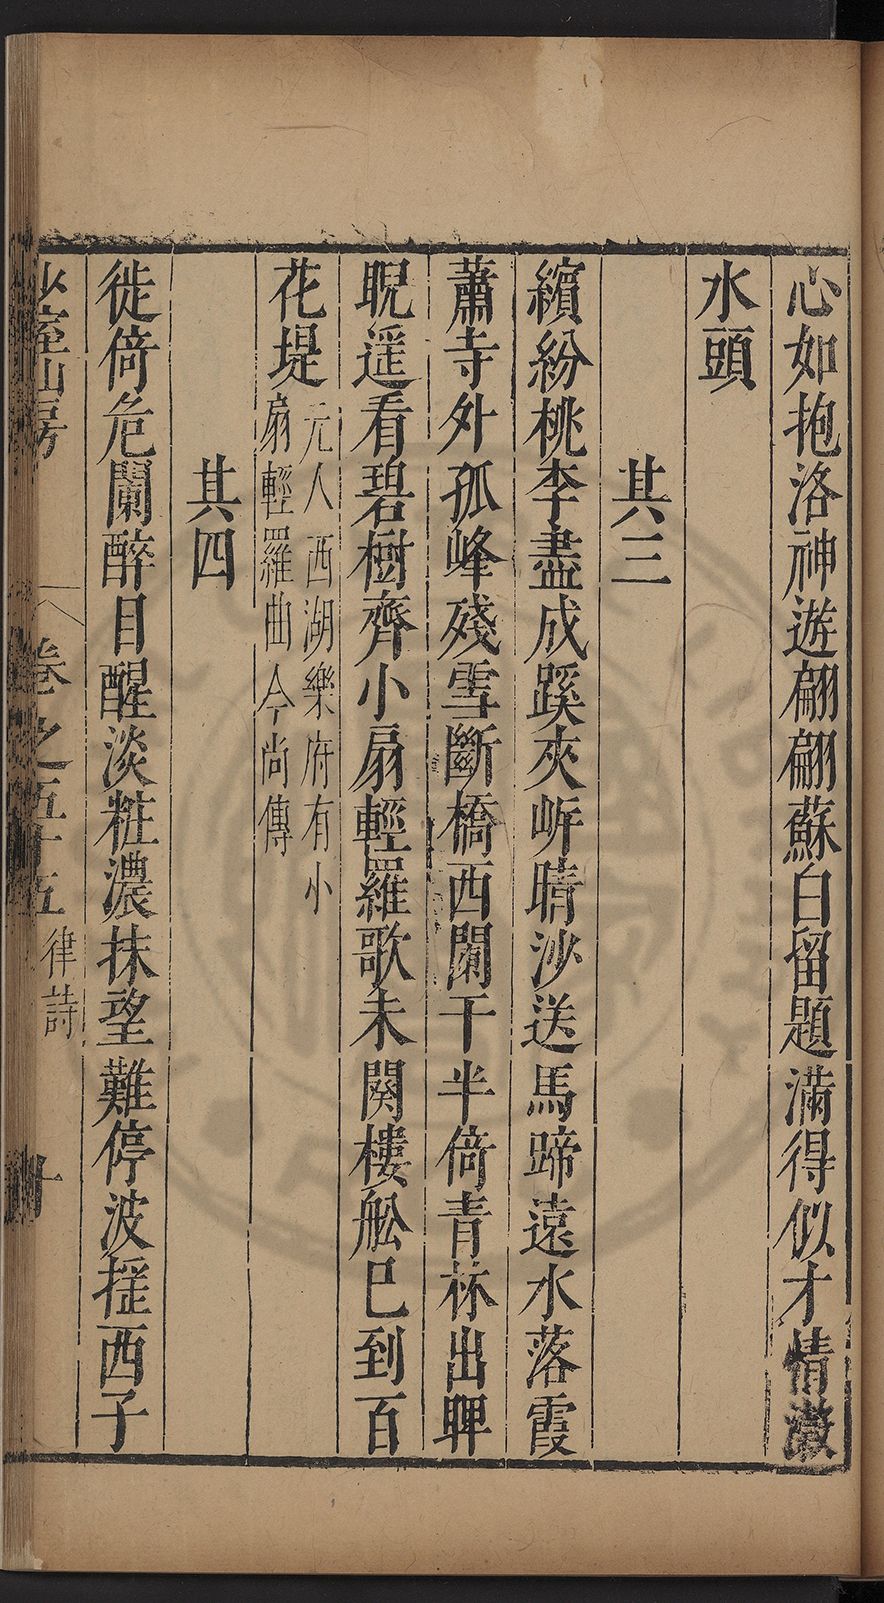 心如抱洛神遊翩翩蘇白留題滿得似才情激
水頭
其三
繽紛桃李盡成蹊夾岍晴沙送馬蹄遠水落霞
蕭寺外孤峰殘雪斷橋西闌干半倚青林出睥
睨遥看碧樹齊小扇輕羅歌未闋樓舩巳到百
花堤
元人西湖樂府有小
扇輕羅曲今尚傳
其四
徙倚危闌醉目醒淡粧濃抹望難停波搖西子
少室山房
卷之五十五
律詩
十